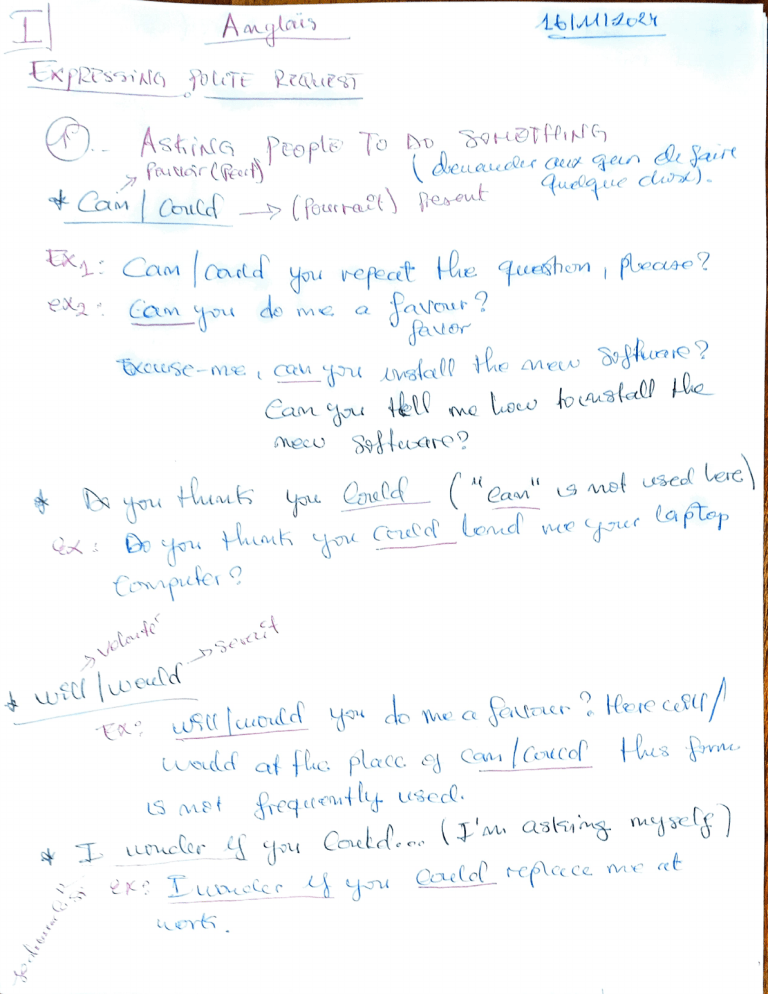 I
Anglais
16/11/2024
EXPRESSING POLITE REQUEST
1.. ASKING PEOPLE TO DO SOMETHING
(demander aux gens de faire
quelque chose).
Pouvoir (Peut)
* Can / Could → (Pourrait) Present
Ex1: Can/could you repeat the question, please?
ex2: Can you do me a favour?
favor
Excuse-me, can you install the new software?
Can you tell me how to install the
new software?
* Do you think you Could ("can" is not used here)
ex: Do you think you could lend me your laptop
Computer?
→ volonté
→ serait
* will / would
Ex: will/would you do me a favour? Here will/
would at the place of can/could this form
is not frequently used.
* I wonder if you Could... (I'm asking myself)
ex: I wonder if you Could replace me at
work.